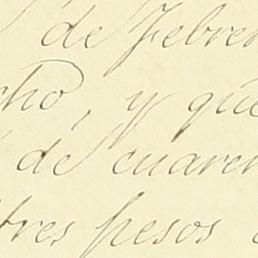 de Febrer
cho, y que
de cuaren
tres pesos